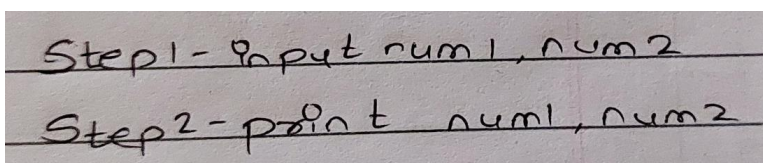 Step1- input num1, num2
Step2- print num1, num2